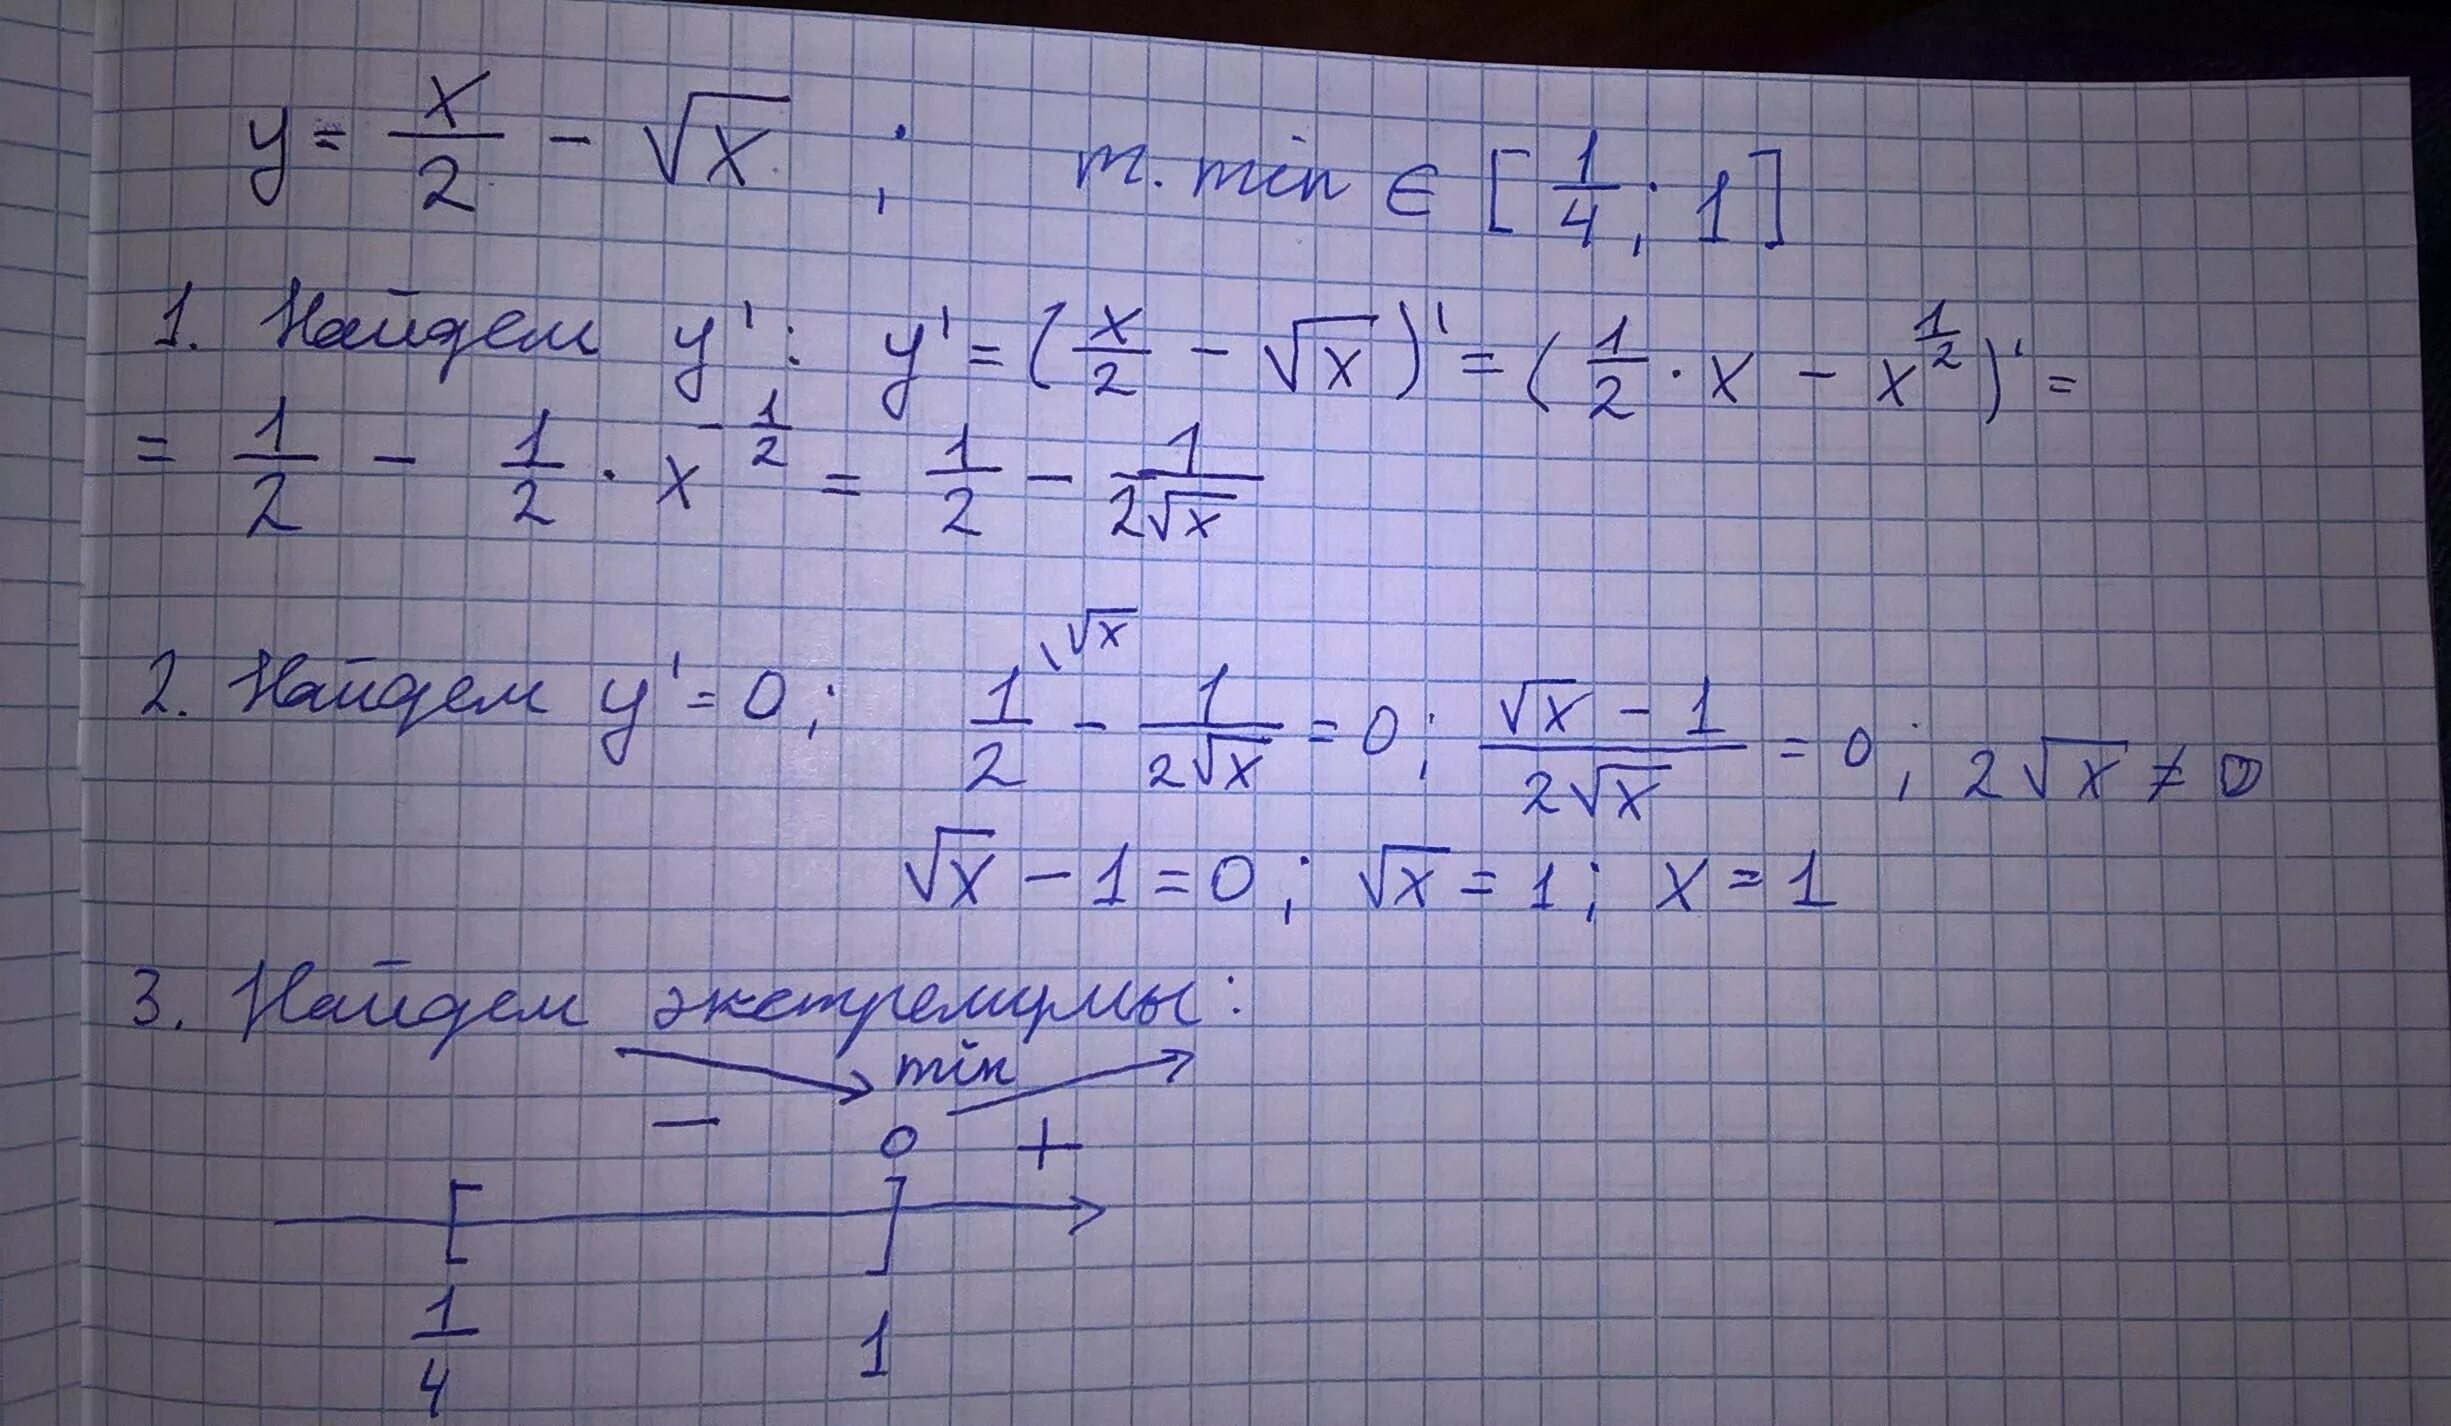 y = x/2 - √x ; т. min ∈ [1/4 ; 1]
1. Найдем y' : y' = (x/2 - √x)' = (1/2 · x - x^(1/2))' =
= 1/2 - 1/2 · x^(-1/2) = 1/2 - 1/(2√x)
2. Найдем y' = 0 ; 1/2 \√x - 1/(2√x) = 0 ; (√x - 1)/(2√x) = 0 ; 2√x ≠ 0
√x - 1 = 0 ; √x = 1 ; x = 1
3. Найдем экстремумы :
min
- 0 +
[ ]
1/4 1